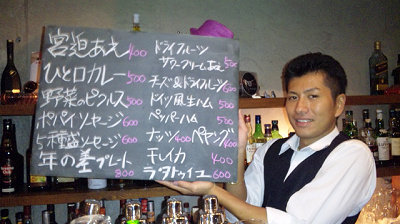 宮迫あえ 400
ひと口カレー 500
野菜のピクルス 500
ポパイソーセージ 600
5種盛ソーセージ 600
年の差プレート 800
ドライフルーツ
サワークリームあえ 500
チーズ&ドライフルーツ 600
ドイツ風生ハム 500
ペッパーハム 500
ナッツ 400 ペヤング 400
チレイカ 400
ラタトゥイユ 600